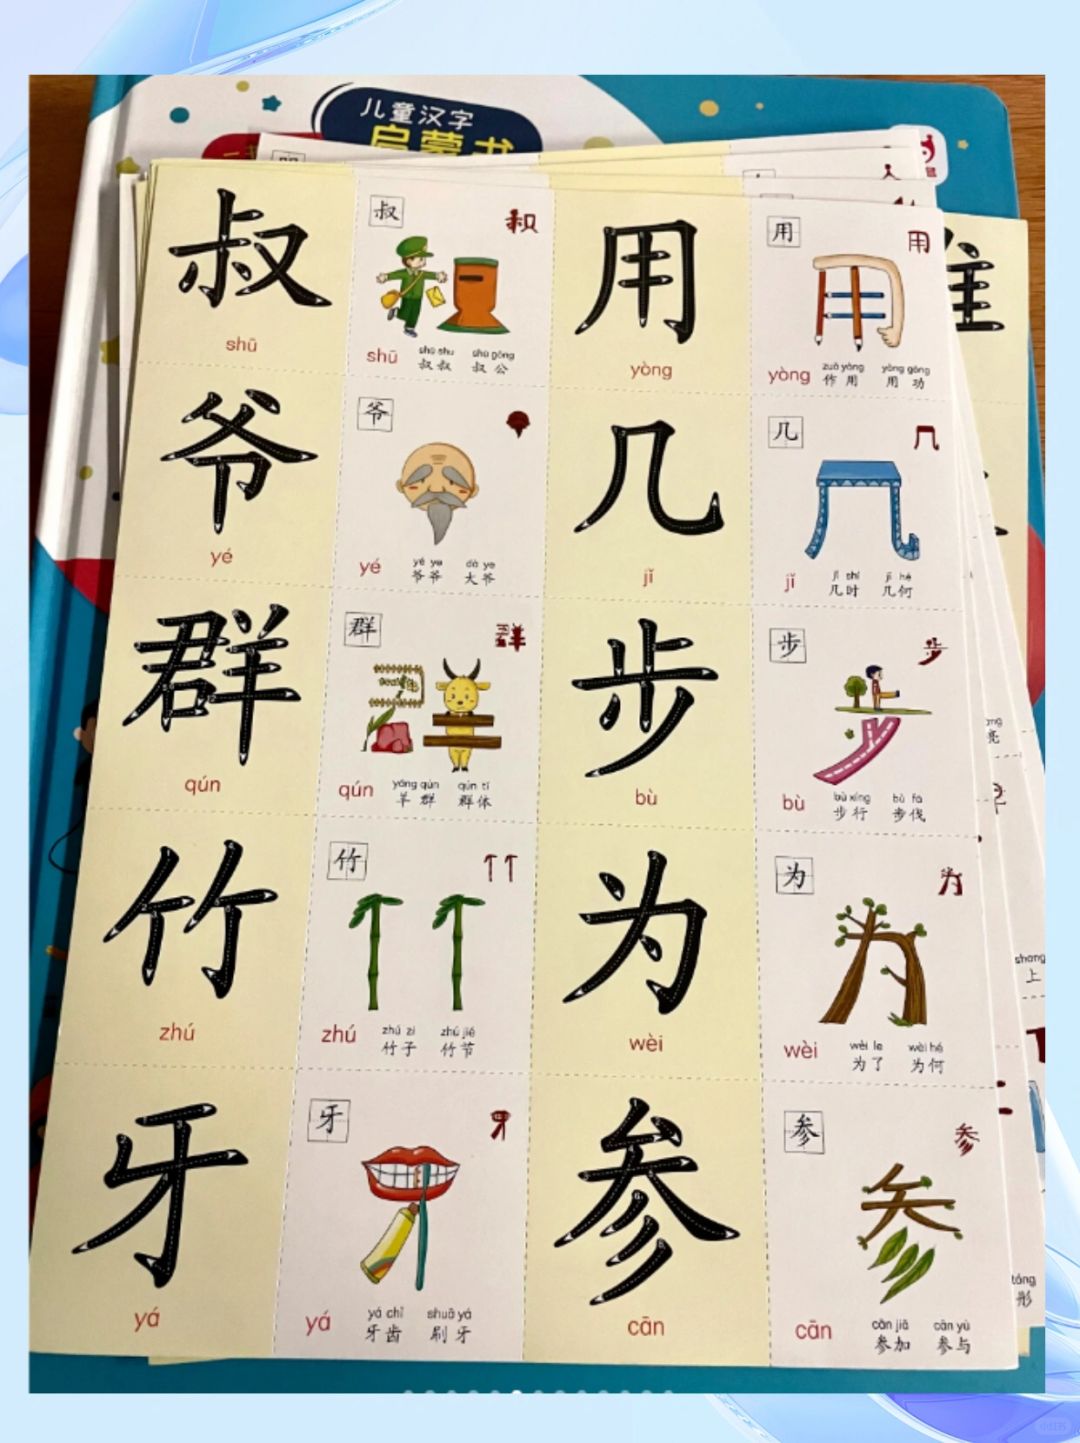 儿童汉字
启蒙书
叔
shū
叔
叔
shū
shū shu
shū gōng
叔叔
叔公
用
yòng
用
用
yòng
zuò yòng
yòng gōng
作用
用功
爷
yé
爷
yé
yé ye
dà ye
爷爷
大爷
几
jǐ
几
几
jǐ
jǐ shí
jǐ hé
几时
几何
群
qún
群
群
qún
yáng qún
qún tǐ
羊群
群体
步
bù
步
步
bù
bù xíng
bù fá
步行
步伐
竹
zhú
竹
zhú
zhú zi
zhú jié
竹子
竹节
为
wèi
为
为
wèi
wèi le
wèi hé
为了
为何
牙
yá
牙
牙
yá
yá chǐ
shuā yá
牙齿
刷牙
参
cān
参
参
cān
cān jiā
cān yù
参加
参与
亮
shang
上
彤
小红书